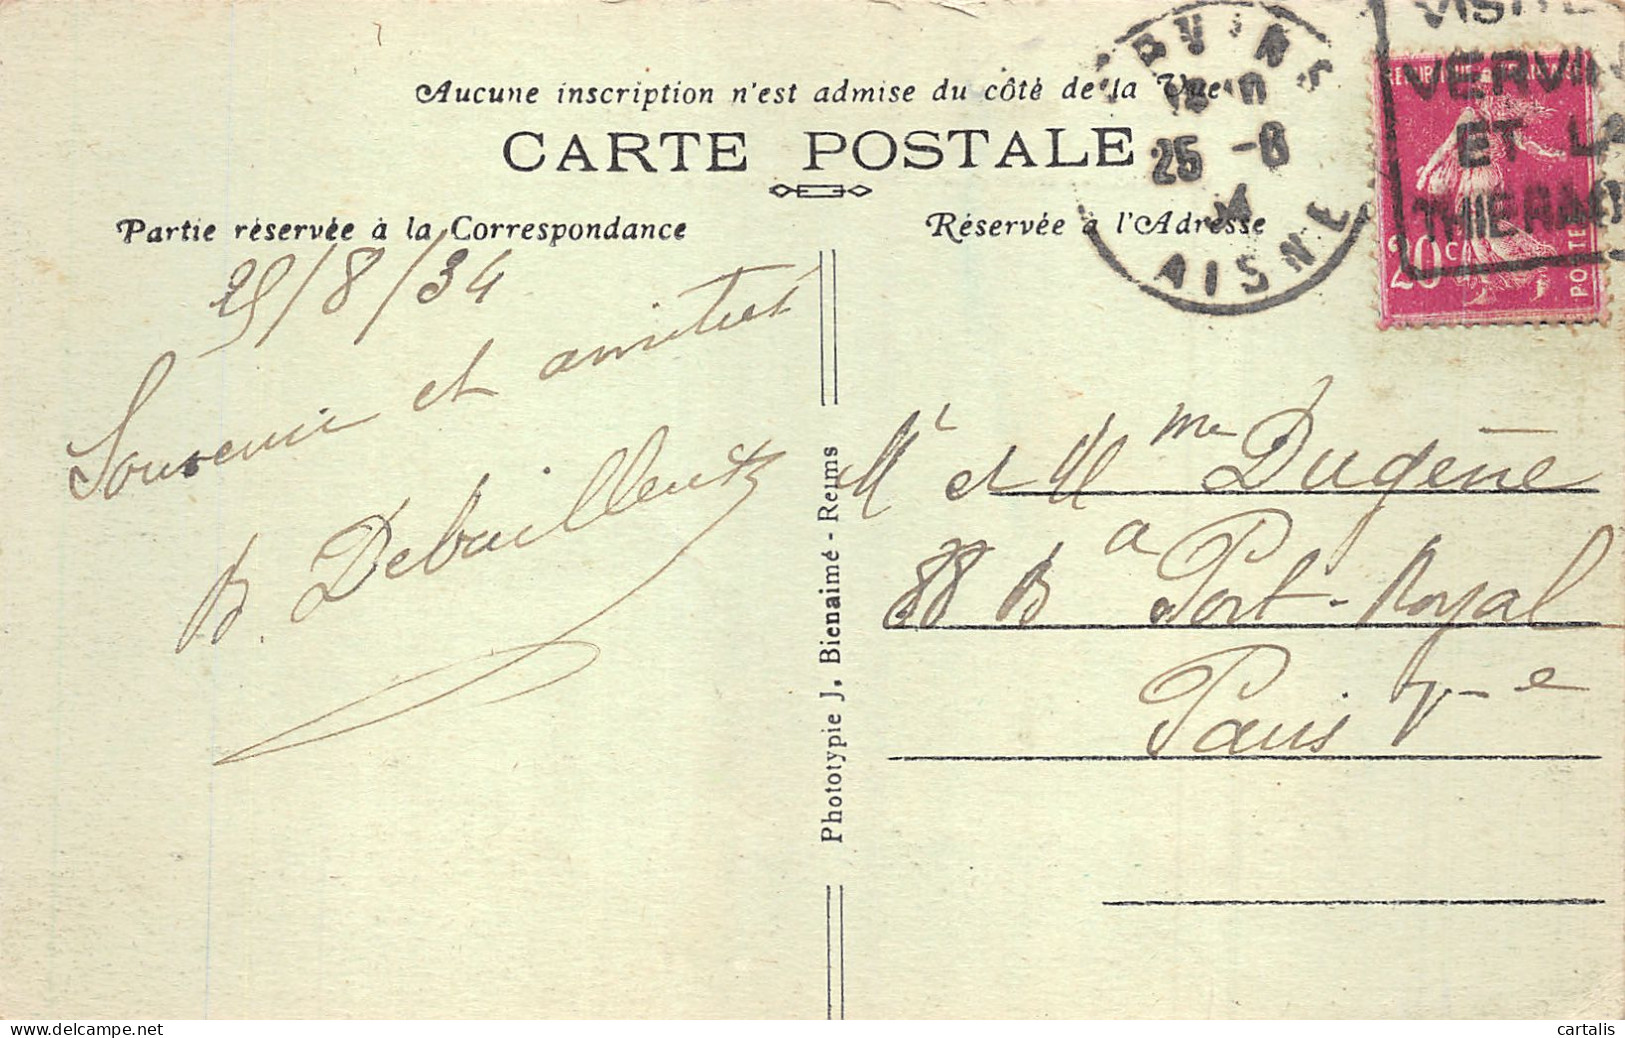 Aucune inscription n'est admise du côté de la Vue
CARTE POSTALE
Partie réservée à la Correspondance
Réservée à l'Adresse
VERVINS
25 -8
34
AISNE
VISITEZ
VERVINS
ET LA
THIERAC
REPUBLIQUE FRANÇAISE
20c
POSTES
25/8/34
Souvenir et amitiés
B. Debuilleux
Mr et Mme Dugène
88 Bd Port-Royal
Paris Ve
Phototypie J. Bienaimé - Reims
cartalis